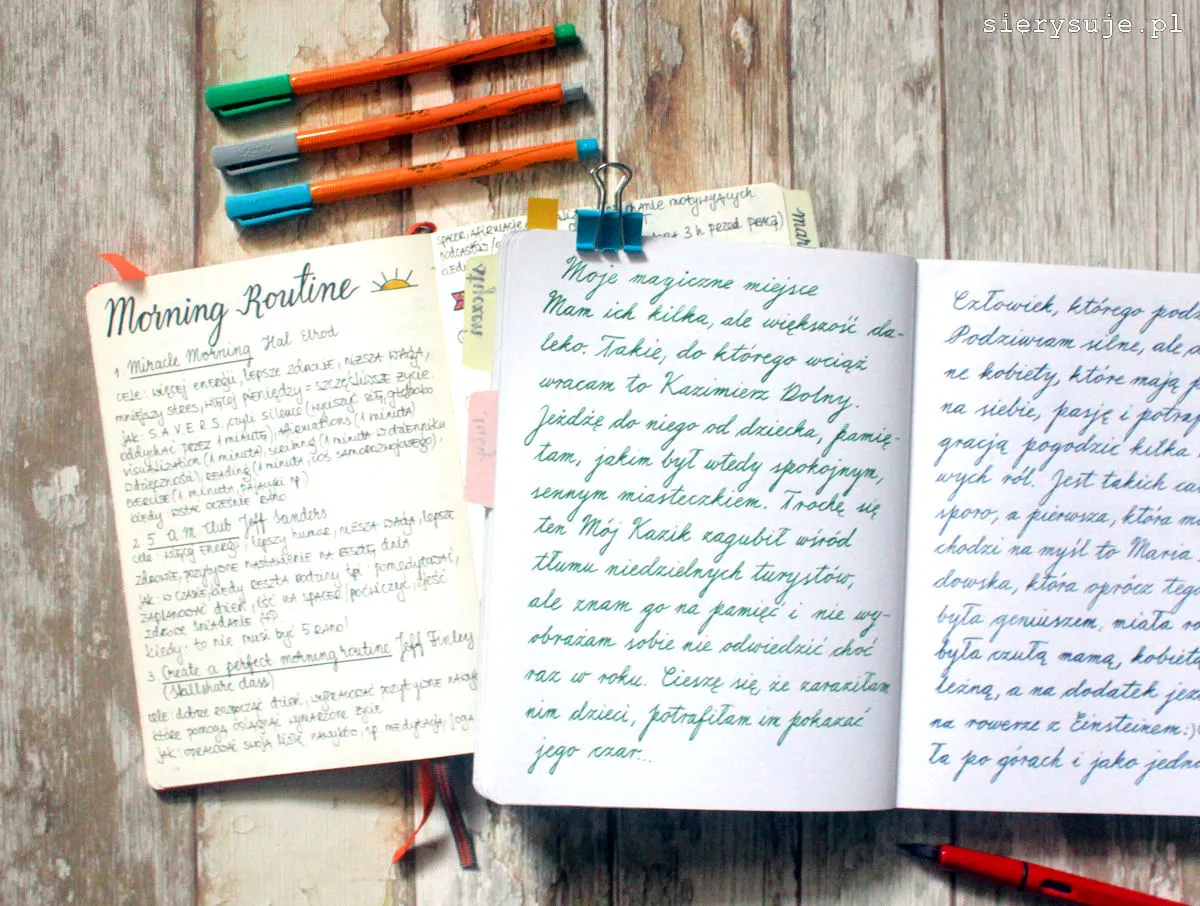 sierysuje.pl
Morning Routine
1. Miracle Morning Hal Elrod
cele: więcej energii, lepsze zdrowie, niższa waga,
mniejszy stres, więcej pieniędzy = szczęśliwsze życie
jak: S.A.V.E.R.S, czyli silence (wyciszyć się, głęboko
oddychać przez 1 minutę), afirmations (1 minuta)
visualization (1 minuta), scribing (1 minuta w dzienniku
wdzięczności), reading (1 minuta, coś samorozwojowego),
(1 minuta, pajacyki np.)
kiedy: wstać wcześnie rano
2. 5 a.m. Club Jeff Sanders
cele: więcej energii, lepszy humor, niższa waga, lepsze
zdrowie, pozytywne nastawienie na resztę dnia
jak: w czasie, kiedy reszta rodziny śpi: pomedytować,
zaplanować dzień, iść na spacer/poćwiczyć, zjeść
zdrowe śniadanie itp.
kiedy: to nie musi być 5 rano!
3. Create a perfect morning routine Jeff Finley
(Skillshare class)
cele: dobrze rozpocząć dzień, wypracować pozytywne nawyki,
które pomogą osiągnąć wymarzone życie
jak: opracować swoją listę nawyków, np. medytacja, joga
motywujących
spacer, afirmacje,
3 h przed pracą)
podcastów/
kiedy
mar
styczeń
luty
Moje magiczne miejsce
Mam ich kilka, ale większość da-
leko. Takie, do którego wciąż
wracam to Kazimierz Dolny.
Jeżdżę do niego od dziecka, pamię-
tam, jakim był wtedy spokojnym,
sennym miasteczkiem. Trochę się
ten Mój Kazik zagubił wśród
tłumu niedzielnych turystów,
ale znam go na pamięć i nie wy-
obrażam sobie nie odwiedzić choć
raz w roku. Cieszę się, że zaraziłam
nim dzieci, potrafiłam im pokazać
jego czar...
Człowiek, którego podz
Podziwiam silne, ale d
ne kobiety, które mają p
na siebie, pasję i potraf
gracją pogodzić kilka
wych ról. Jest takich ca
sporo, a pierwsza, która m
chodzi na myśl to Maria
dowska, która oprócz tego
była geniuszem, miała ro
była czułą mamą, kobietą
leżną, a na dodatek jeź
na rowerze z Einsteinem:)
ła po górach i jako jedna